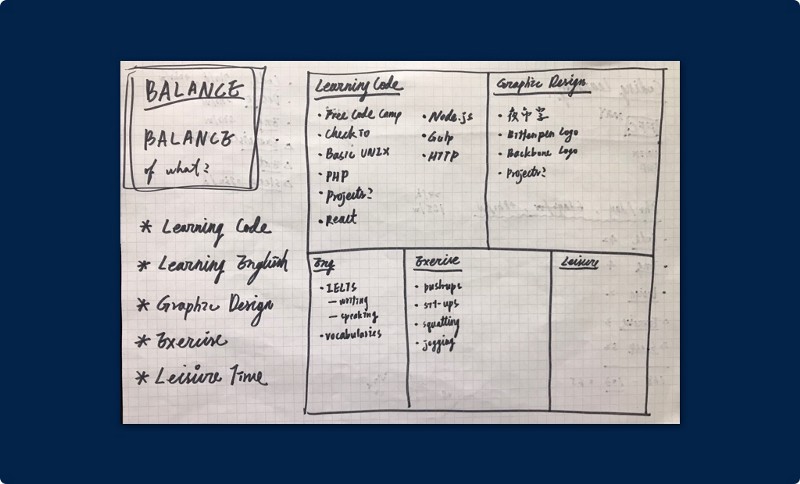 BALANCE
BALANCE
of what?
* Learning Code
* Learning English
* Graphic Design
* Exercise
* Leisure Time
Learning Code
• Free Code Camp
• Check io
• Basic UNIX
• PHP
• Projects?
• React
• Node.js
• Gulp
• HTTP
Graphic Design
• Bitten pen Logo
• Backbone Logo
• Projects?
Eng
• IELTS
— writing
— speaking
• vocabularies
Exercise
• pushups
• sit-ups
• squatting
• jogging
Leisure